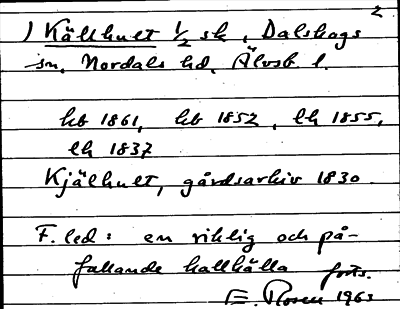 2
1) Källhult 1/2 sk, Dalskogs
sn, Nordals hd, Älvsb. l.
hb 1861, hb 1852, lh 1855,
lh 1837
Kjälhult, gårdsarkiv 1830
F. led: en riklig och på-
fallande kallkälla forts.
E. Rosen 1963